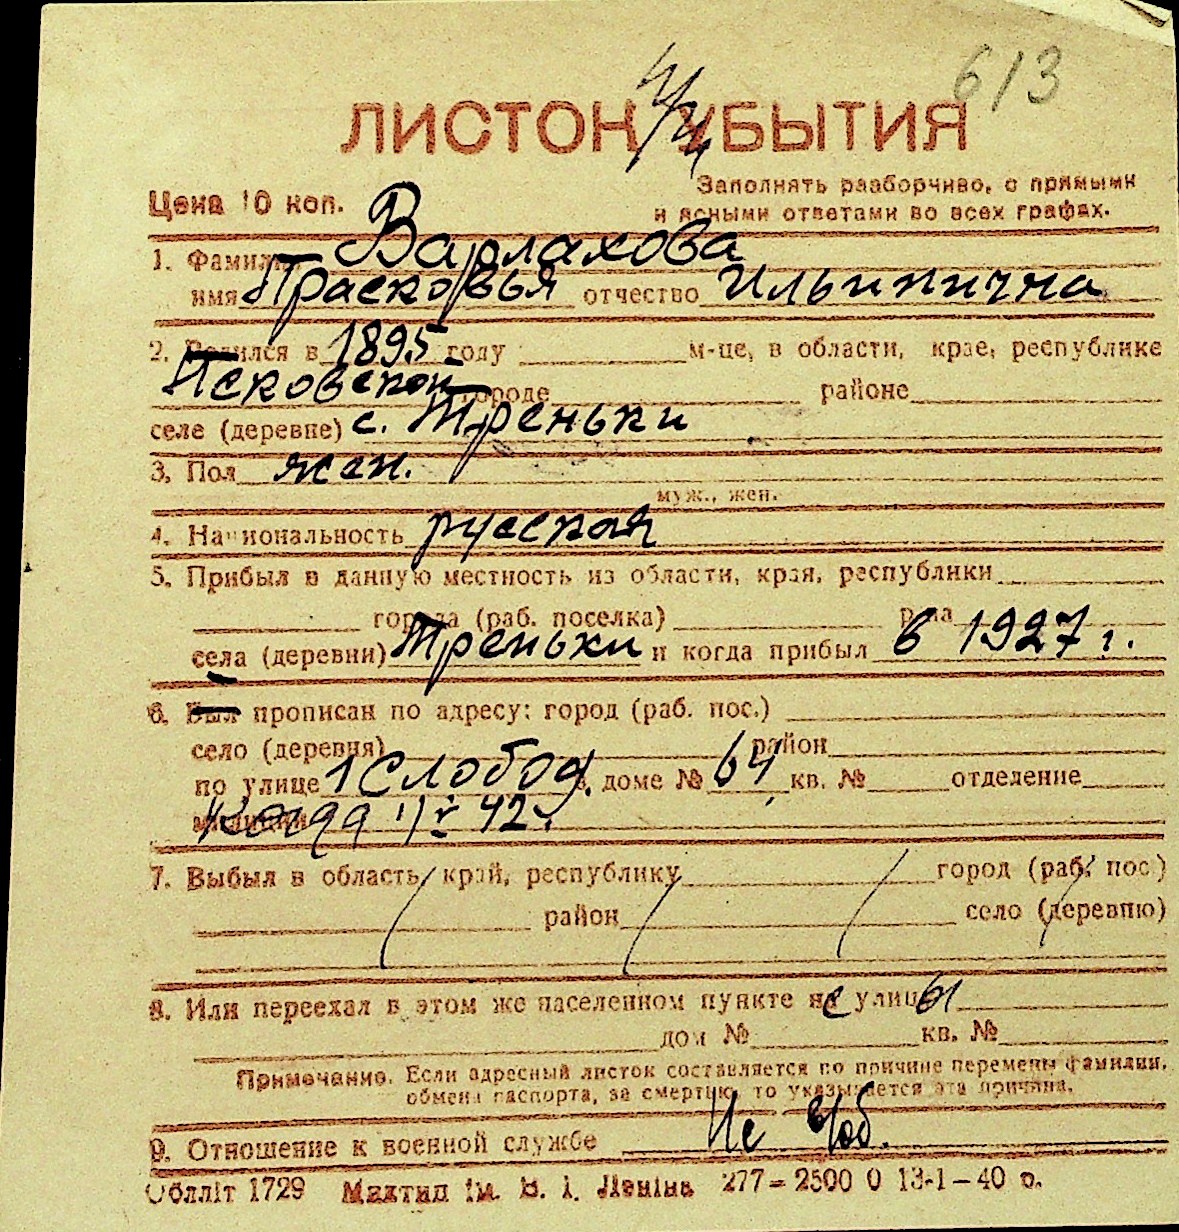 613
ЛИСТОК УБЫТИЯ
Цена 10 коп.
Заполнять разборчиво, с прямыми
и ясными ответами во всех графах.
1. Фамилия Варлахова
имя Прасковья отчество Ильинична
2. Родился в 1895 году м-це, в области, крае, республике
Псковской городе районе
селе (деревне) с. Треньки
3. Пол жен.
муж., жен.
4. Национальность русская
5. Прибыл в данную местность из области, края, республики
города (раб. поселка) р-на
села (деревни) Треньки и когда прибыл в 1927 г.
6. Был прописан по адресу: город (раб. пос.)
село (деревня) район
по улице 1 Слобод. в доме № 64 кв. № отделение
милиции Когда 42.
7. Выбыл в область, край, республику город (раб. пос.)
район село (деревню)
8. Или переехал в этом же населенном пункте с улицы
дом № кв. №
Примечание. Если адресный листок составляется по причине перемены фамилии,
обмена паспорта, за смертью, то указывается эта причина.
9. Отношение к военной службе Не воб.
Обліт 1729 им. В. І. Леніна 277–2500 0 13-1–40 р.